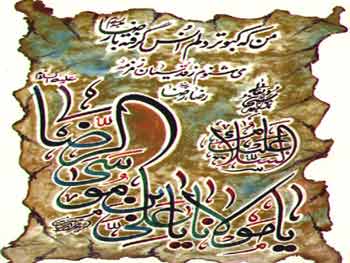 من که کبوتر دلم انس گرفته با رضا
می شنوم ز قدسیان زمزمه رضا رضا
السلام علیک
یا مولانا یا علی بن موسی الرضا
علیه السلام